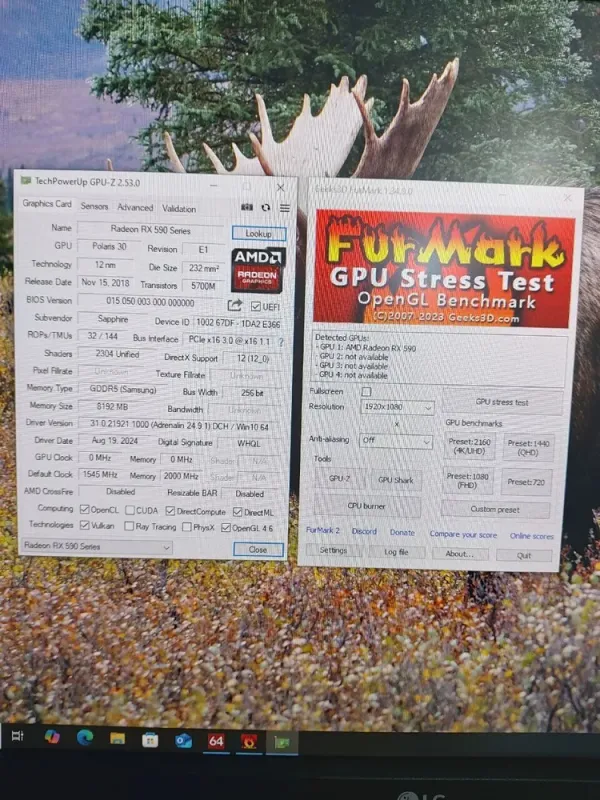 TechPowerUp GPU-Z 2.53.0
Graphics Card Sensors Advanced Validation
Name Radeon RX 590 Series Lookup
GPU Polaris 30 Revision E1
Technology 12 nm Die Size 232 mm²
Release Date Nov 15, 2018 Transistors 5700M
AMD
RADEON
GRAPHICS
BIOS Version 015.050.003.000.000000 UEFI
Subvendor Sapphire Device ID 1002 67DF - 1DA2 E366
ROPs/TMUs 32 / 144 Bus Interface PCIe x16 3.0 @ x16 1.1 ?
Shaders 2304 Unified DirectX Support 12 (12_0)
Pixel Fillrate Unknown Texture Fillrate Unknown
Memory Type GDDR5 (Samsung) Bus Width 256 bit
Memory Size 8192 MB Bandwidth Unknown
Driver Version 31.0.21921.1000 (Adrenalin 24.9.1) DCH / Win10 64
Driver Date Aug 19, 2024 Digital Signature WHQL
GPU Clock 0 MHz Memory 0 MHz Shader N/A
Default Clock 1545 MHz Memory 2000 MHz Shader N/A
AMD CrossFire Disabled Resizable BAR Disabled
Computing OpenCL CUDA DirectCompute DirectML
Technologies Vulkan Ray Tracing PhysX OpenGL 4.6
Radeon RX 590 Series Close
Geeks3D FurMark 1.34.0.0
FurMark
GPU Stress Test
OpenGL Benchmark
(C)2007-2023 Geeks3D.com
Detected GPUs:
- GPU 1: AMD Radeon RX 590
- GPU 2: not available
- GPU 3: not available
- GPU 4: not available
Fullscreen
Resolution 1920x1080
x
Anti-aliasing Off
Tools
GPU-Z GPU Shark
CPU burner
GPU stress test
GPU benchmarks
Preset:2160
(4K/UHD)
Preset:1440
(QHD)
Preset:1080
(FHD)
Preset:720
Custom preset
FurMark 2 Discord Donate Compare your score Online scores
Settings Log file About... Quit
64
LG